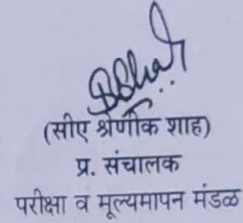 (सीए श्रेणीक शाह)
प्र. संचालक
परीक्षा व मूल्यमापन मंडळ